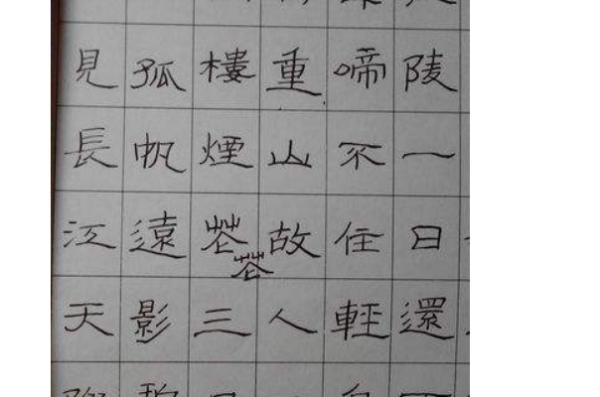 陵一日還
啼不住輕
重山故人
樓煙花三
孤帆遠影
見長江天